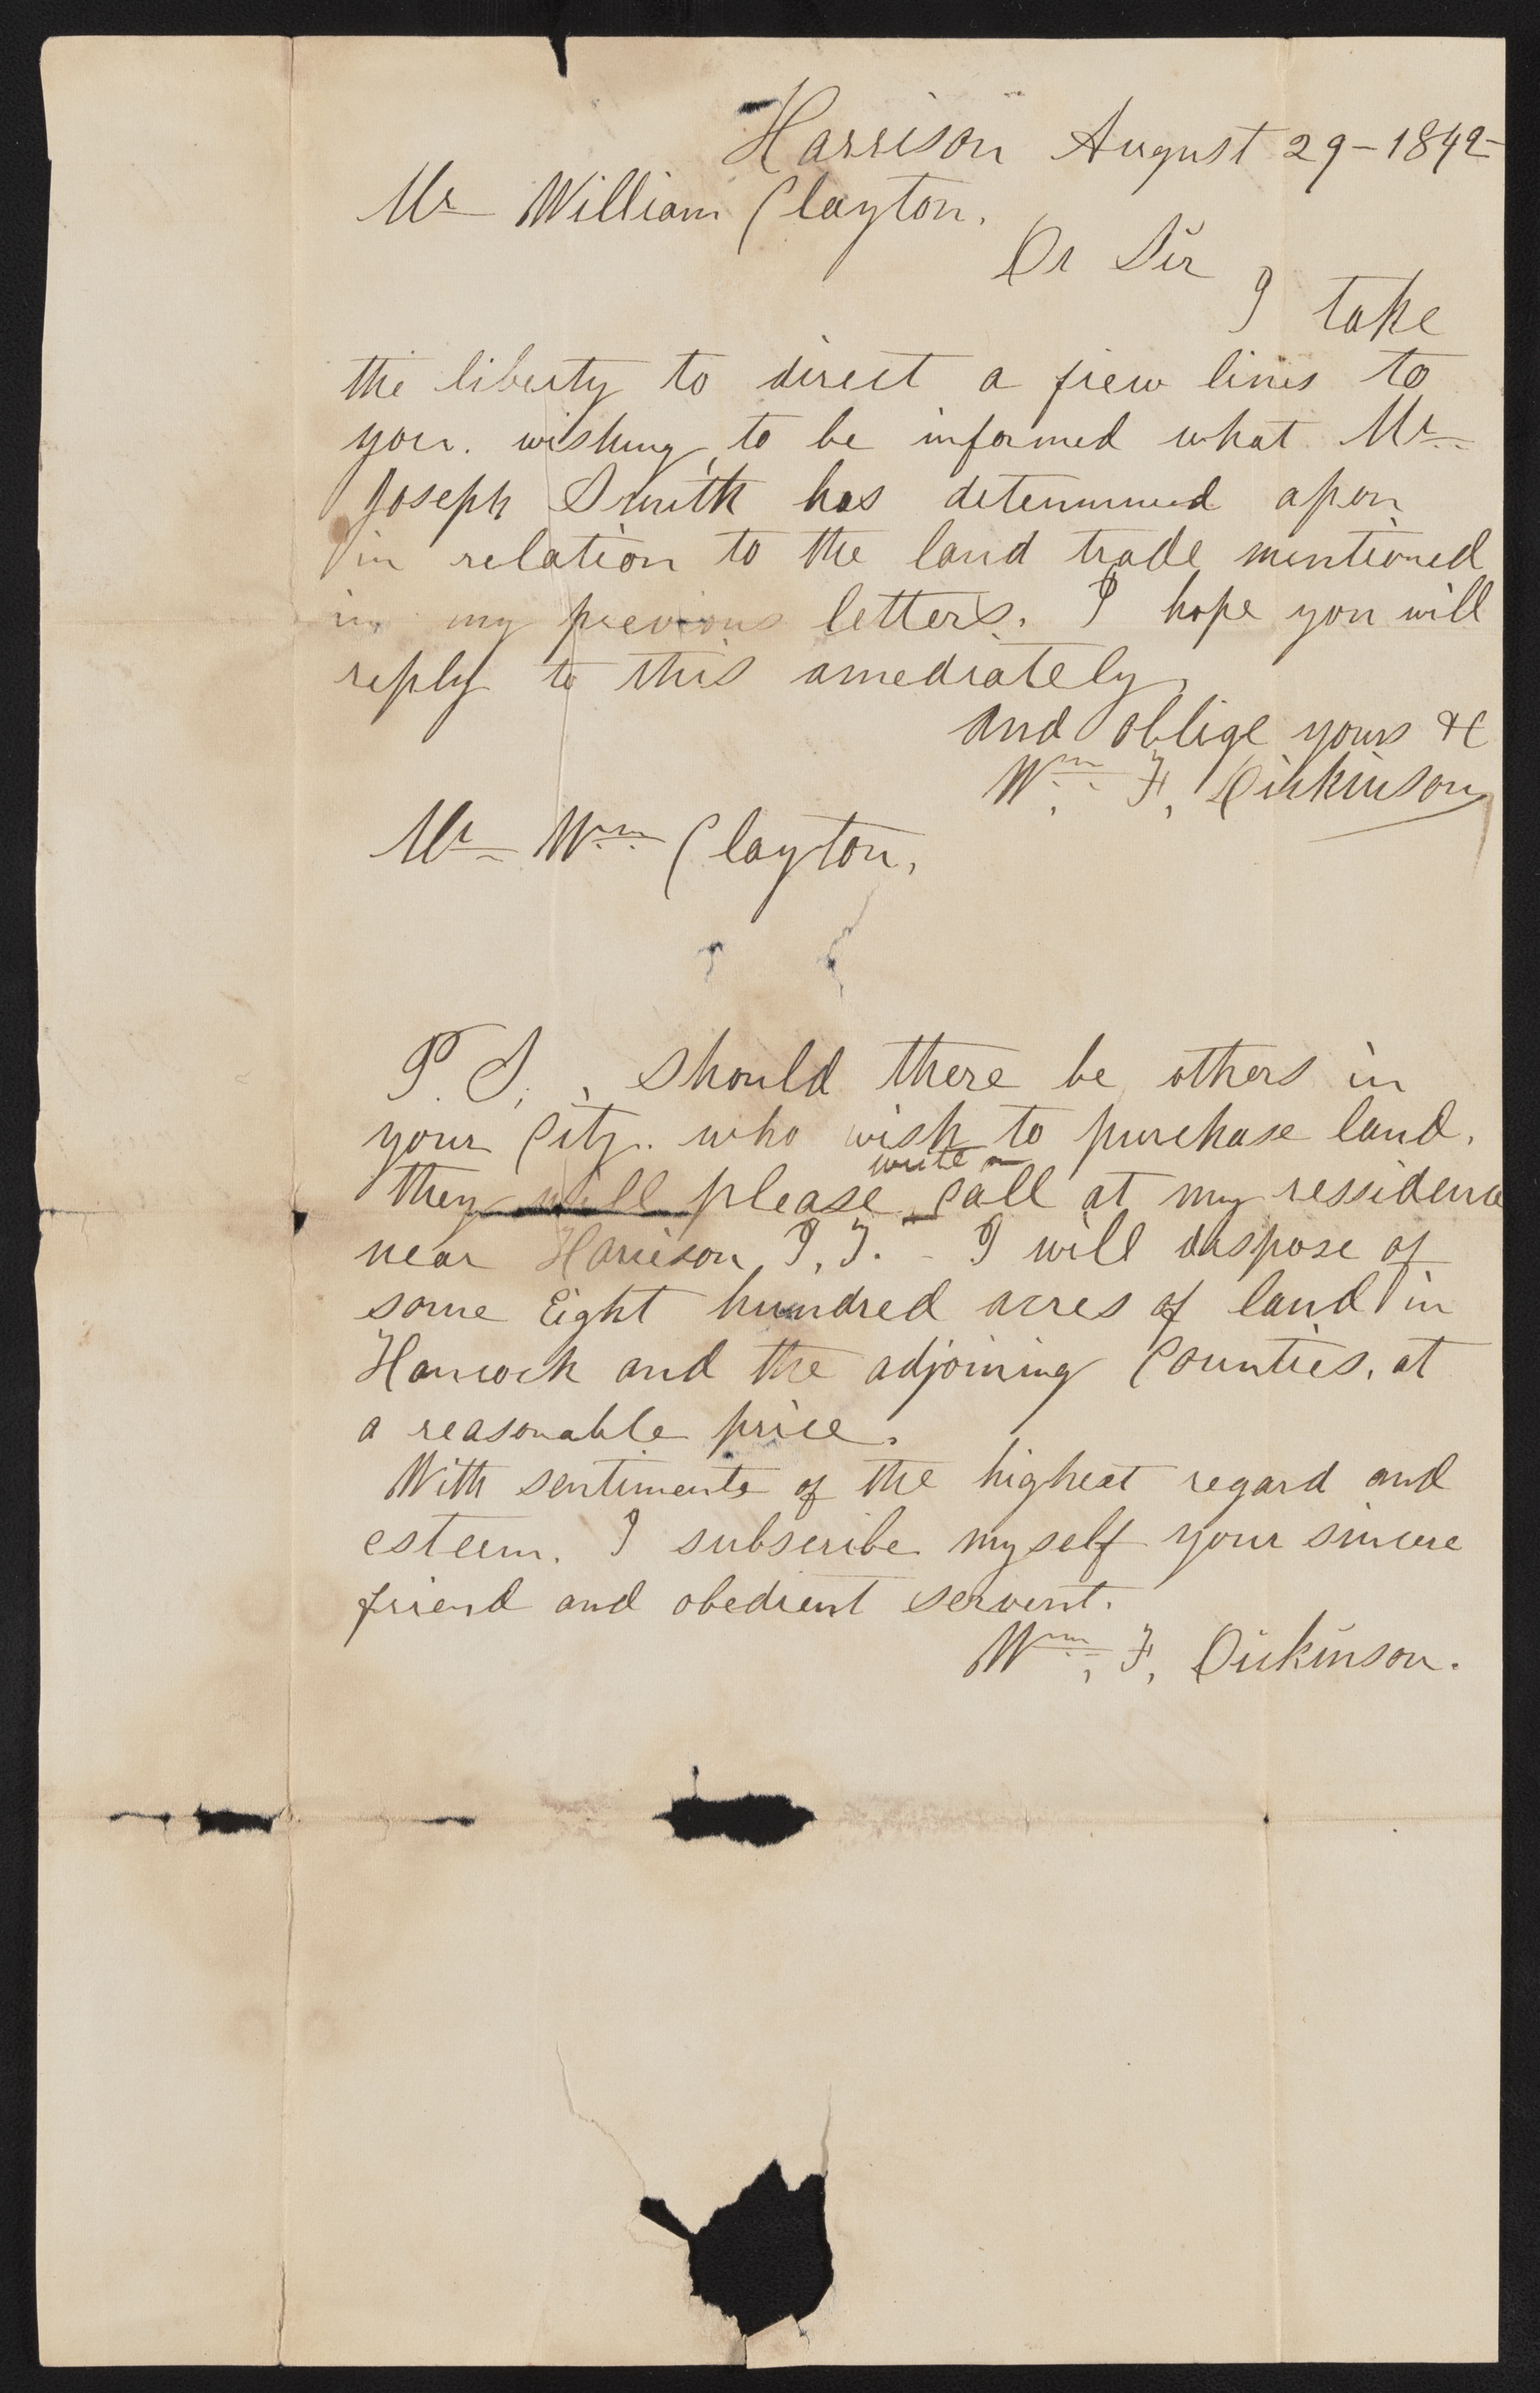 Harrison August 29–1842–
Mr William Clayton.
Dr Sir
I take
the liberty to direct a fiew lines to
you. wishing to be informed what Mr
Joseph Smith has determined apon
in relation to the land trade mentioned
in my previous letters. I hope you will
reply to this amediately,
and oblige yours &c
Wm. F, Dickinson
Mr Wm Clayton,
P. S. , should there be others in
your City. who wish to purchase land,
write or
they will please call at my ressidence
near Harrison I, T. – I will dispose of
some Eight hundred acres of land in
Hancock and the adjoining Counties, at
a reasonable price.
With sentiments of the highest regard and
esteem. I subscribe myself your sincere
friend and obedient servent.
Wm, F, Dickinson.